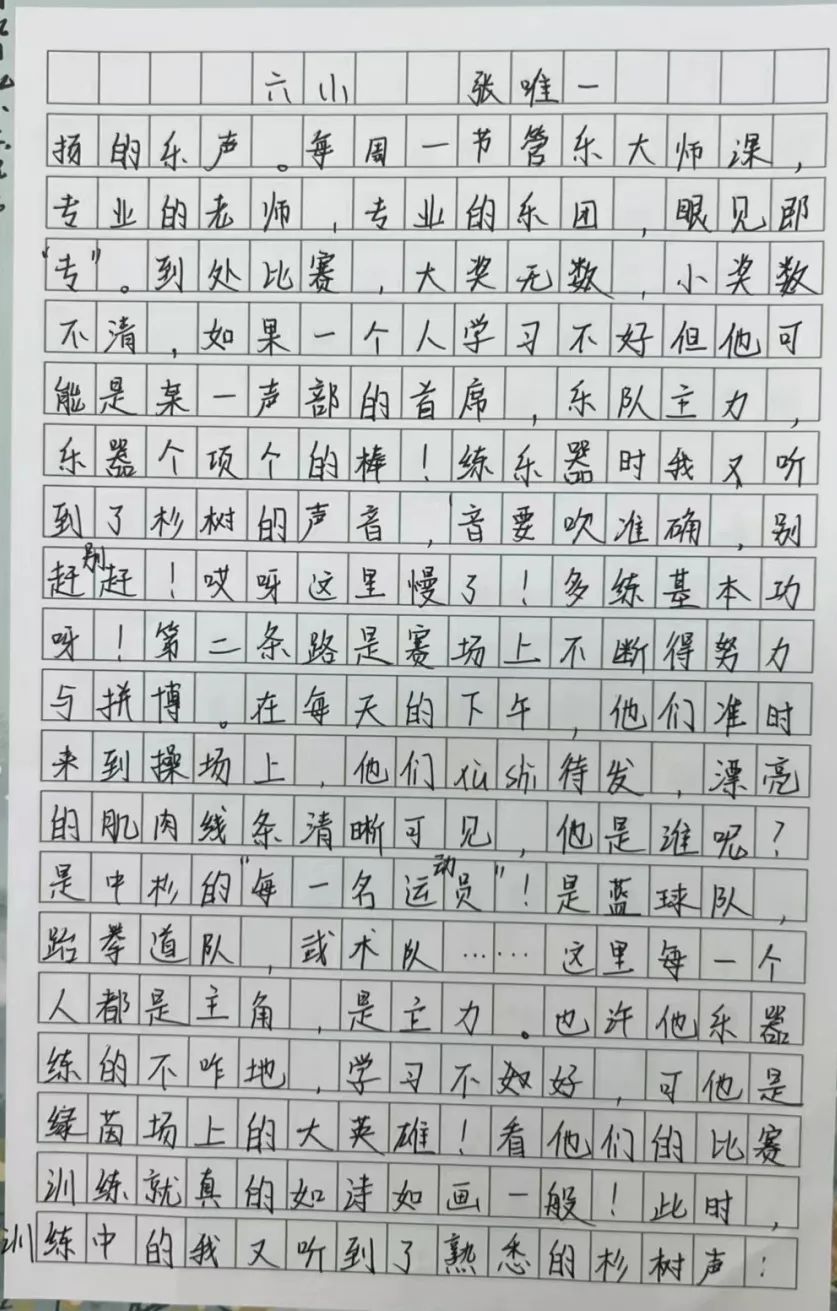 六小 张唯一
扬的乐声。每周一节管乐大师课，
专业的老师，专业的乐团，眼见即
“专”。到处比赛，大奖无数，小奖数
不清，如果一个人学习不好但他可
能是某一声部的首席，乐队主力，
乐器个项个的棒！练乐器时我又听
到了杉树的声音，音要吹准确，别
赶别赶！哎呀这里慢了！多练基本功
呀！第二条路是赛场上不断得努力
与拼博。在每天的下午，他们准时
来到操场上，他们xu shi待发，漂亮
的肌肉线条清晰可见，他是谁呢？
是中杉的“每一名运动员”！是蓝球队，
跆拳道队，武术队……这里每一个
人都是主角，是主力。也许他乐器
练的不咋地，学习不好，可他是
绿茵场上的大英雄！看他们的比赛
训练就真的如诗如画一般！此时，
训练中的我又听到了熟悉的杉树声：